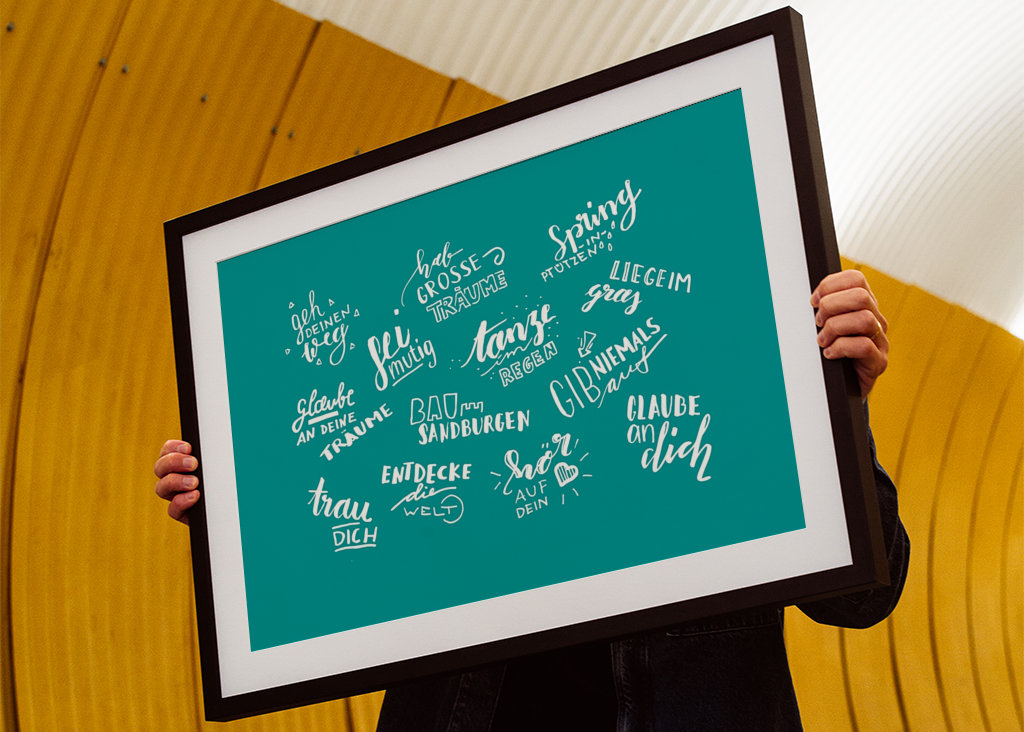 Spring
-IN-
PFÜTZEN
hab
GROSSE
TRÄUME
LIEGE IM
gras
geh
DEINEN
weg
sei
mutig
tanze
im
REGEN
GIB NIEMALS
auf
glaube
AN DEINE
TRÄUME
BAU
SANDBURGEN
GLAUBE
an
dich
ENTDECKE
die
WELT
hör
AUF
DEIN
trau
DICH